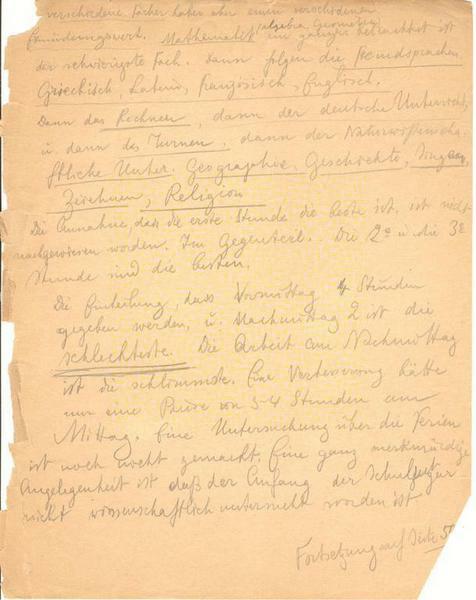 verschiedene Fächer haben aber einen verschiedenen
Ermüdungswert. Mathematik (algebra Geometrie) im ganzen betrachtet ist
der schwierigste Fach. Dann folgen die Fremdsprachen
Griechisch, Latein, französisch, Englisch.
Dann das Rechnen, dann der deutsche Unterricht
u. dann des Turnen, dann der Naturwissenscha-
ftliche Unter. Geographie, Geschichte, Singen,
Zeichnen, Religion
Die Annahme, das die erste Stunde die beste ist, ist nicht
nachgewiesen worden. Im Gegenteil. Die 2e u. die 3e
Stunde sind die besten.
Die Einteilung, dass Vormittag 4 Stunden
gegeben werden, u. Nachmittag 2 ist die
schlechteste. Die Arbeit am Nachmittag
ist die schlimmste. Eine Verbesserung hätte
nur eine Pause von 3-4 Stunden am
Mittag. Eine Untersuchung über die Ferien
ist noch nicht gemacht. Eine ganz merkwürdige
Angelegenheit ist daß der Anfang der
nicht wissenschaftlich untersucht worden ist
Fortsetzung auf Seite